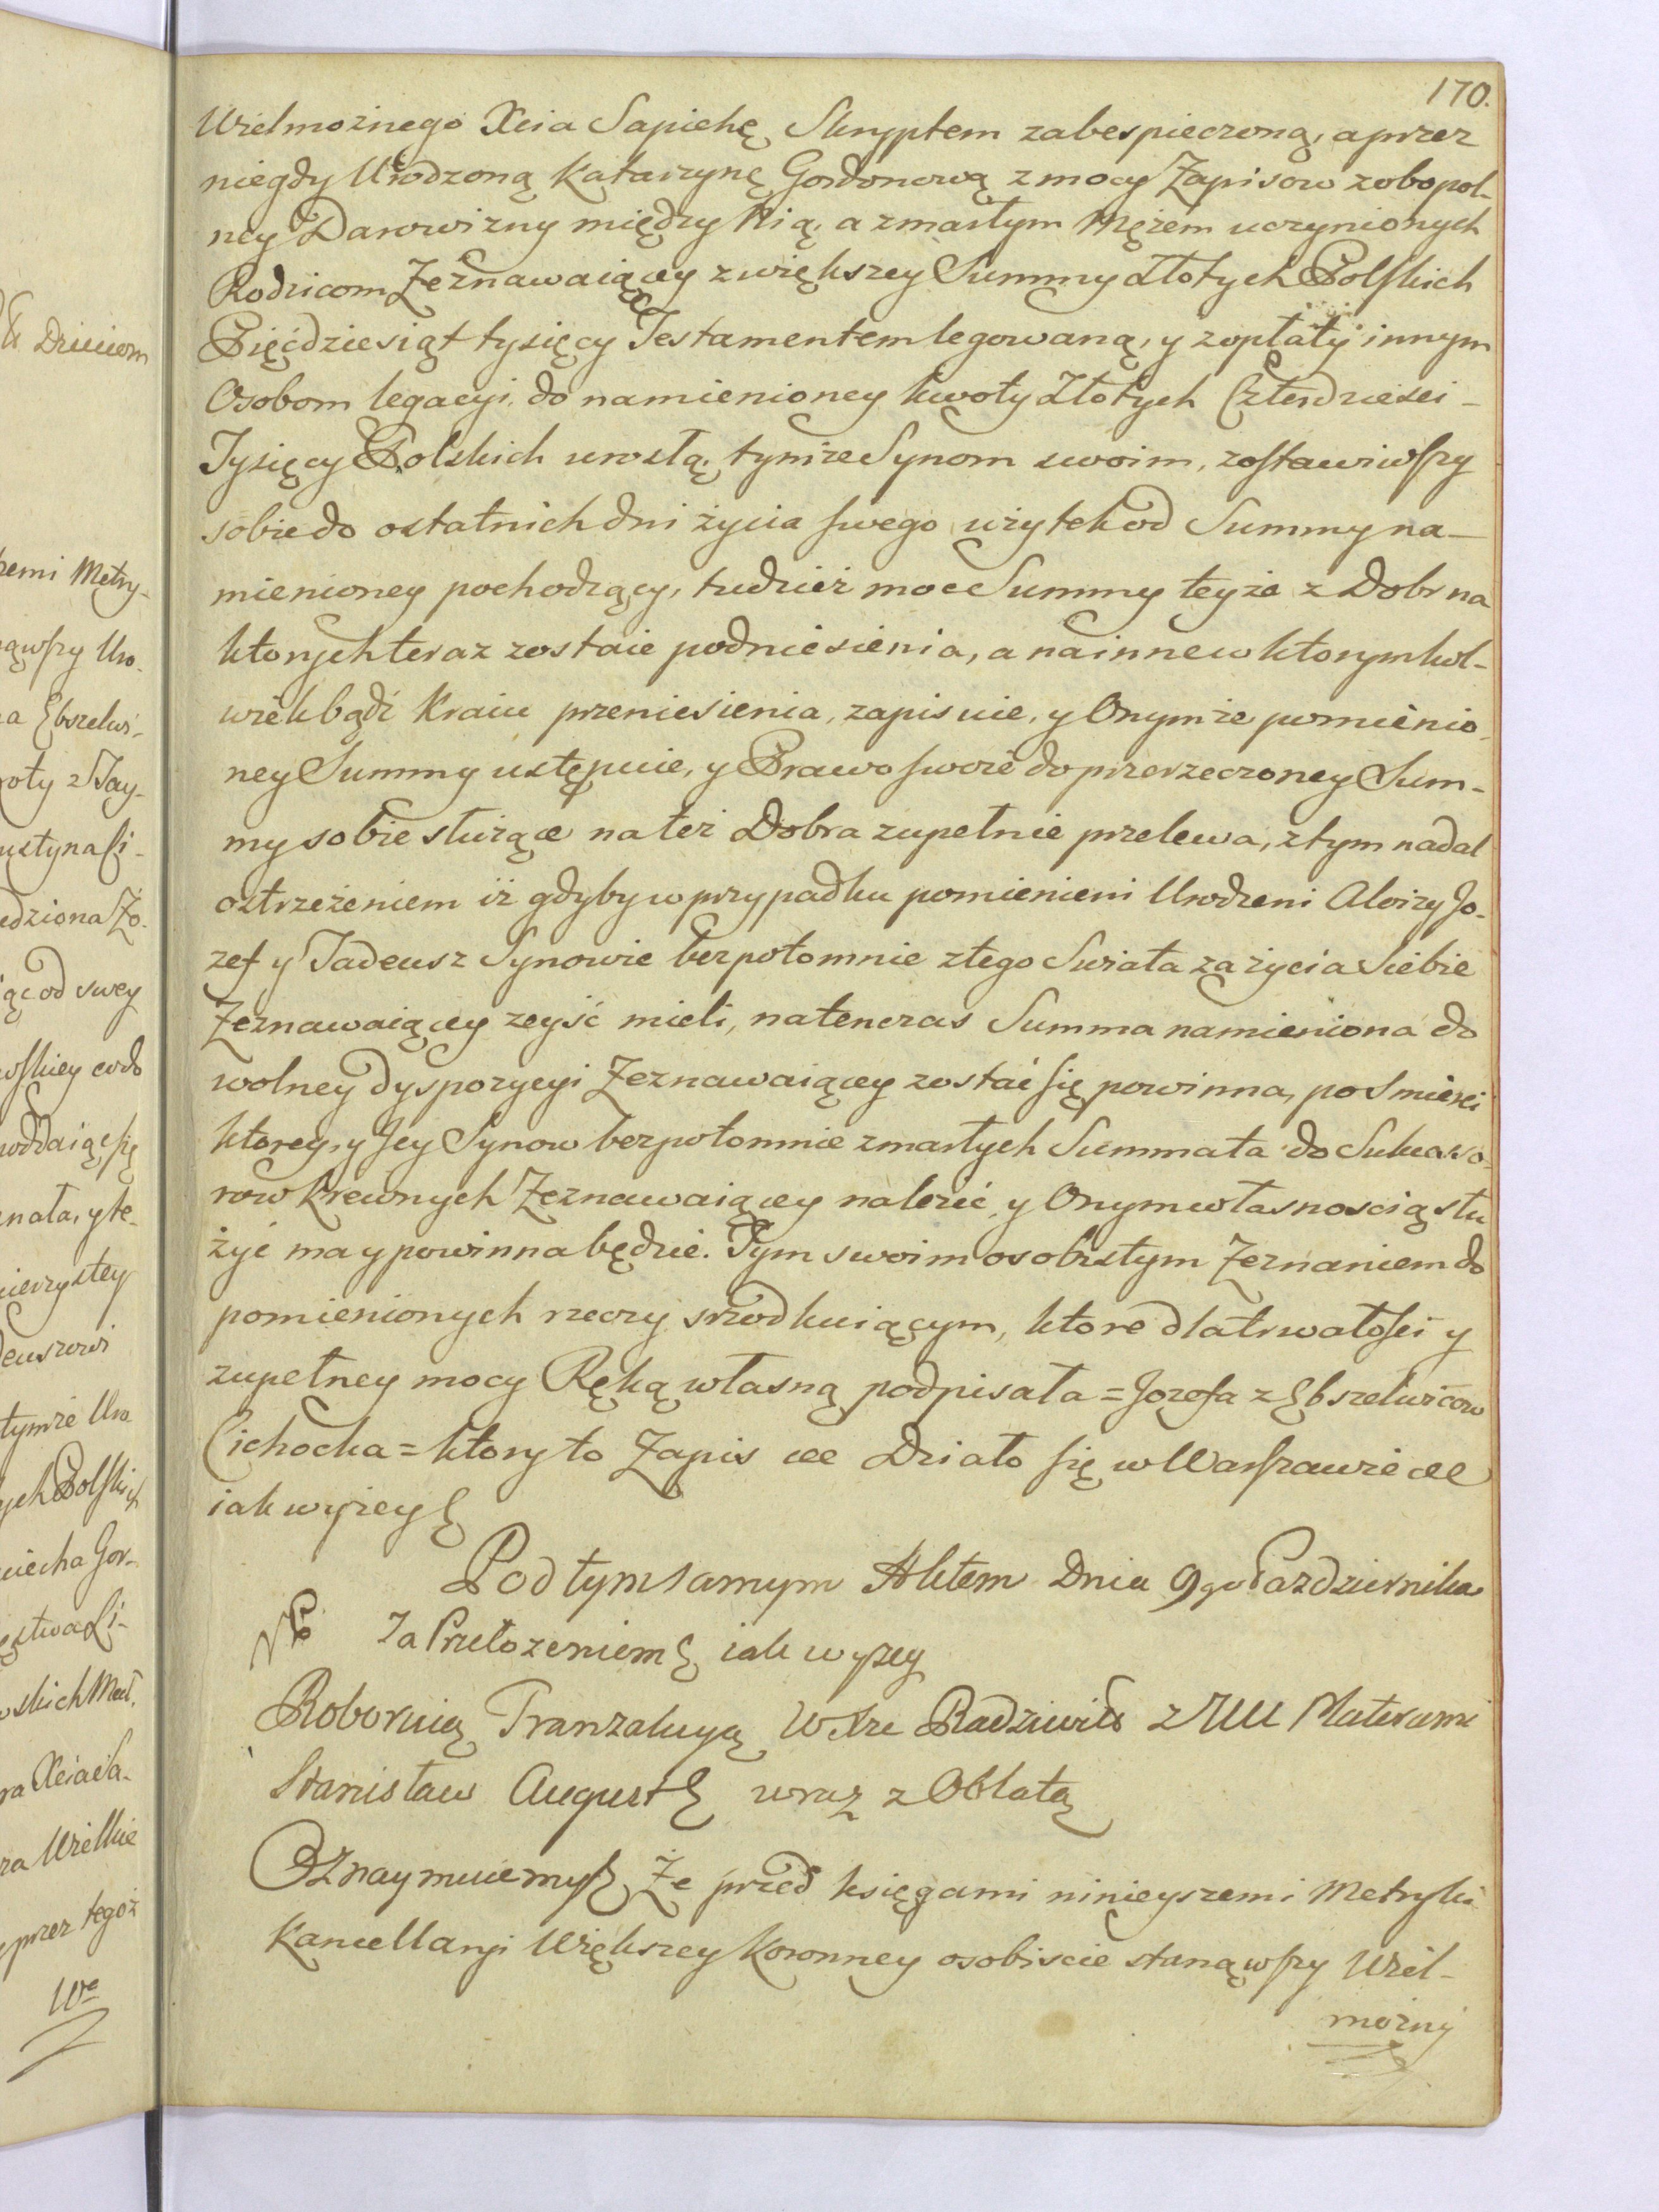 170.
Wielmożnego Xcia Sapiehę Skryptem zabespieczoną, a przez
niegdy Urodzoną Katarzynę Gordonową z mocy Zapisow zobopol-
ney Darowizny między Nią, a zmarłym Mężem uczynionych
Rodzicom Zeznawaiącey z większey Summy Złotych Polskich
Pięćdziesiąt tysięcy Testamentem legowaną, y z opłaty innym
Osobom legacyi, do namienioney kwoty Złotych Czterdziesci
Tysięcy Polskich urosłą, tymże Synom swoim, zostawiwszy
sobie do ostatnich dni życia swego użytek od Summy na-
mienioney pochodzący, tudzież moc Summy teyże z Dobr na
ktorych teraz zostaie podniesienia, a na inne w ktorymkol-
wiek bądź Kraiu przeniesienia, zapisuie, y Onymże pomienio-
ney Summy ustępuie, y Prawo swoie do przerzeczoney Sum-
my sobie służące na też Dobra zupełnie przelewa, z tym nadal
ostrzeżeniem iż gdyby w przypadku pomienieni Urodzeni Aloizy Jo-
zef y Tadeusz Synowie bezpotomnie z tego Swiata za życia Siebie
Zeznawaiącey zeyść mieli, natenczas Summa namieniona do
wolney dyspozycyi Zeznawaiącey zostać się powinna, po Smierci
ktorey, y Jey Synow bezpotomnie zmarłych Summa ta do Sukcesso-
row Krewnych Zeznawaiącey należić, y Onym własnoscią słu
żyć ma y powinna będzie. Tym swoim osobistym Zeznaniem do
pomienionych rzeczy srzodkuiącym, ktore dla trwałości y
zupełney mocy Ręką własną podpisała = Jozefa z Ebszelwicow
Cichocka = ktory to Zapis etc Działo się w Warszawie etc
iak wyżey
Pod tym samym Aktem Dnia 9go Pazdziernika
Za Przełożeniem iak wyżey
Roboruią Tranzakcyą WXże Radziwiłł z UUr Platerami
Stanisław August wraz z Oblatą
Oznaymuiemy Że przed księgami ninieyszemi Metryki
Kancellaryi Większey Koronney osobiscie stanąwszy Wiel-
możny
Dzieciom
szemi Metry-
nąwszy Uro-
na Ebszelwi-
edziona Zo-
iąc od swey
wskiey co do
poddaiąc się
nata, y te-
deuszowi
tymże Uro
ych Polskich
ciecha Gor-
skich Mał.
ra Xcia Sa-
ra Wielkie
przez tegoż
We